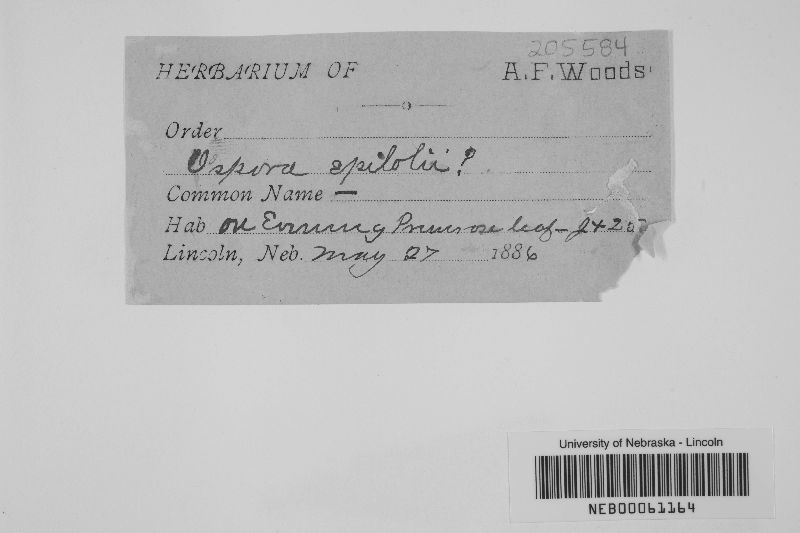 205584
HERBARIUM OF A.F.Woods
Order
Uspora epilolii?
Common Name —
Hab. on Evening Primrose leaf-
Lincoln, Neb. May 27 1886
University of Nebraska - Lincoln
NEB00061164